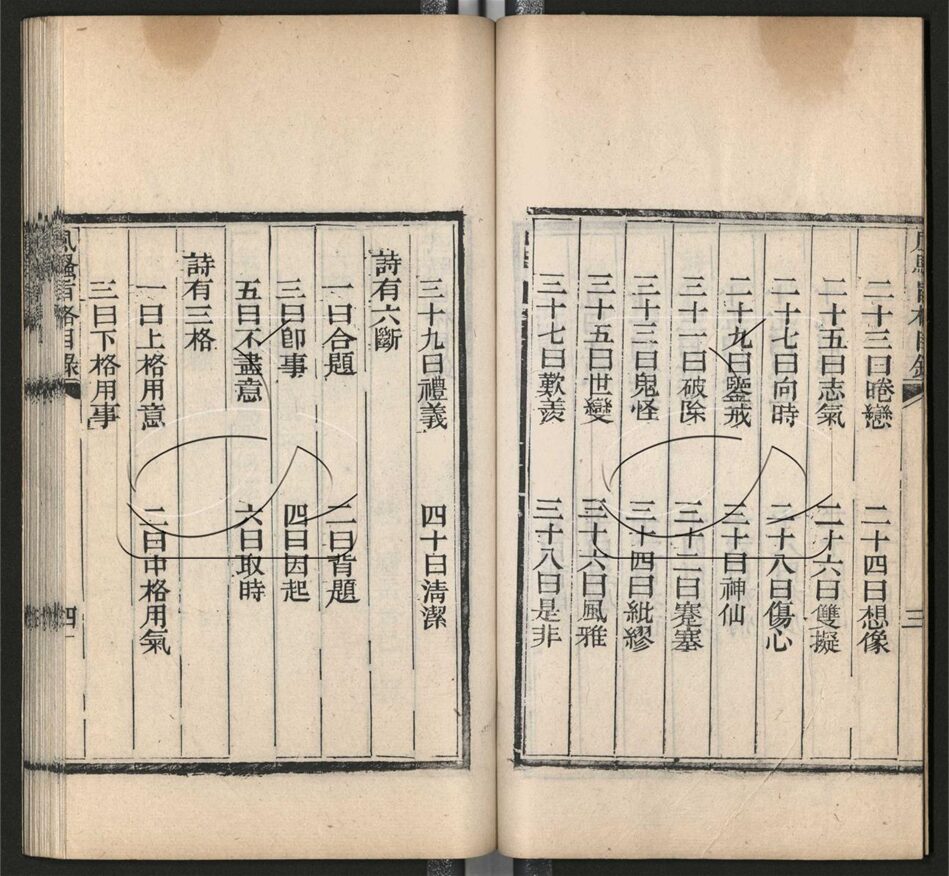 風騷旨格目錄 三
二十三曰睠戀 二十四曰想像
二十五曰志氣 二十六曰雙擬
二十七曰向時 二十八曰傷心
二十九曰鑒戒 三十曰神仙
三十一曰破除 三十二曰蹇塞
三十三曰鬼怪 三十四曰紕繆
三十五曰世變 三十六曰風雅
三十七曰歎羨 三十八曰是非
三十九曰禮義 四十曰清潔
詩有六斷
一曰合題 二曰背題
三曰卽事 四曰因起
五曰不盡意 六曰取時
詩有三格
一曰上格用意 二曰中格用氣
三曰下格用事
風騷旨格目錄 四